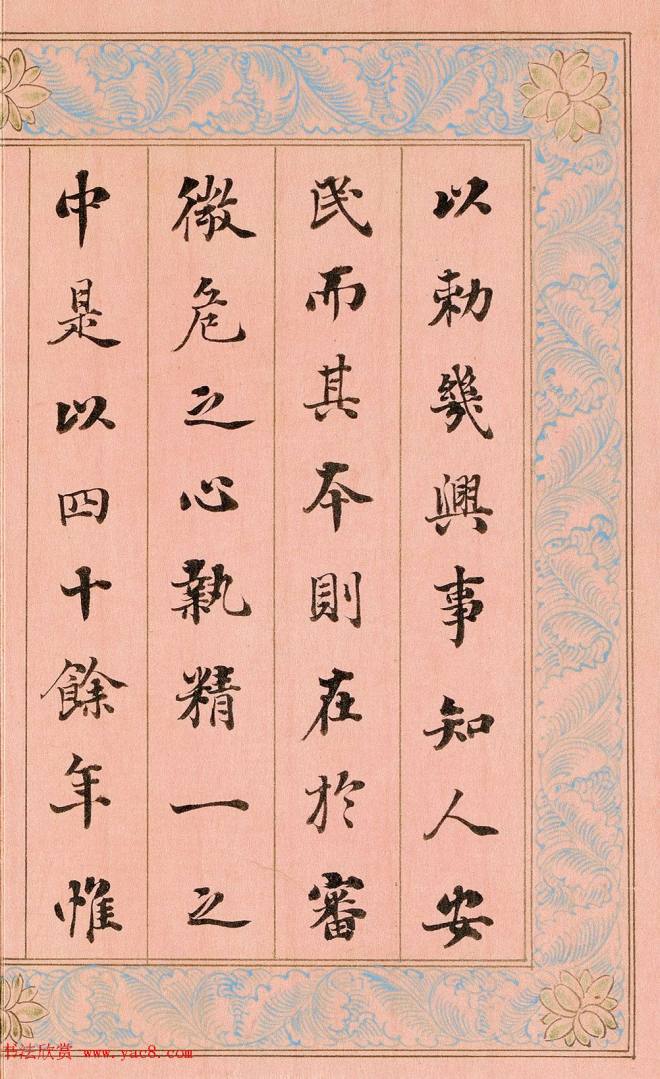 以勅幾興事知人安
民而其本則在於審
微危之心執精一之
中是以四十餘年惟
书法欣赏 www.yac8.com